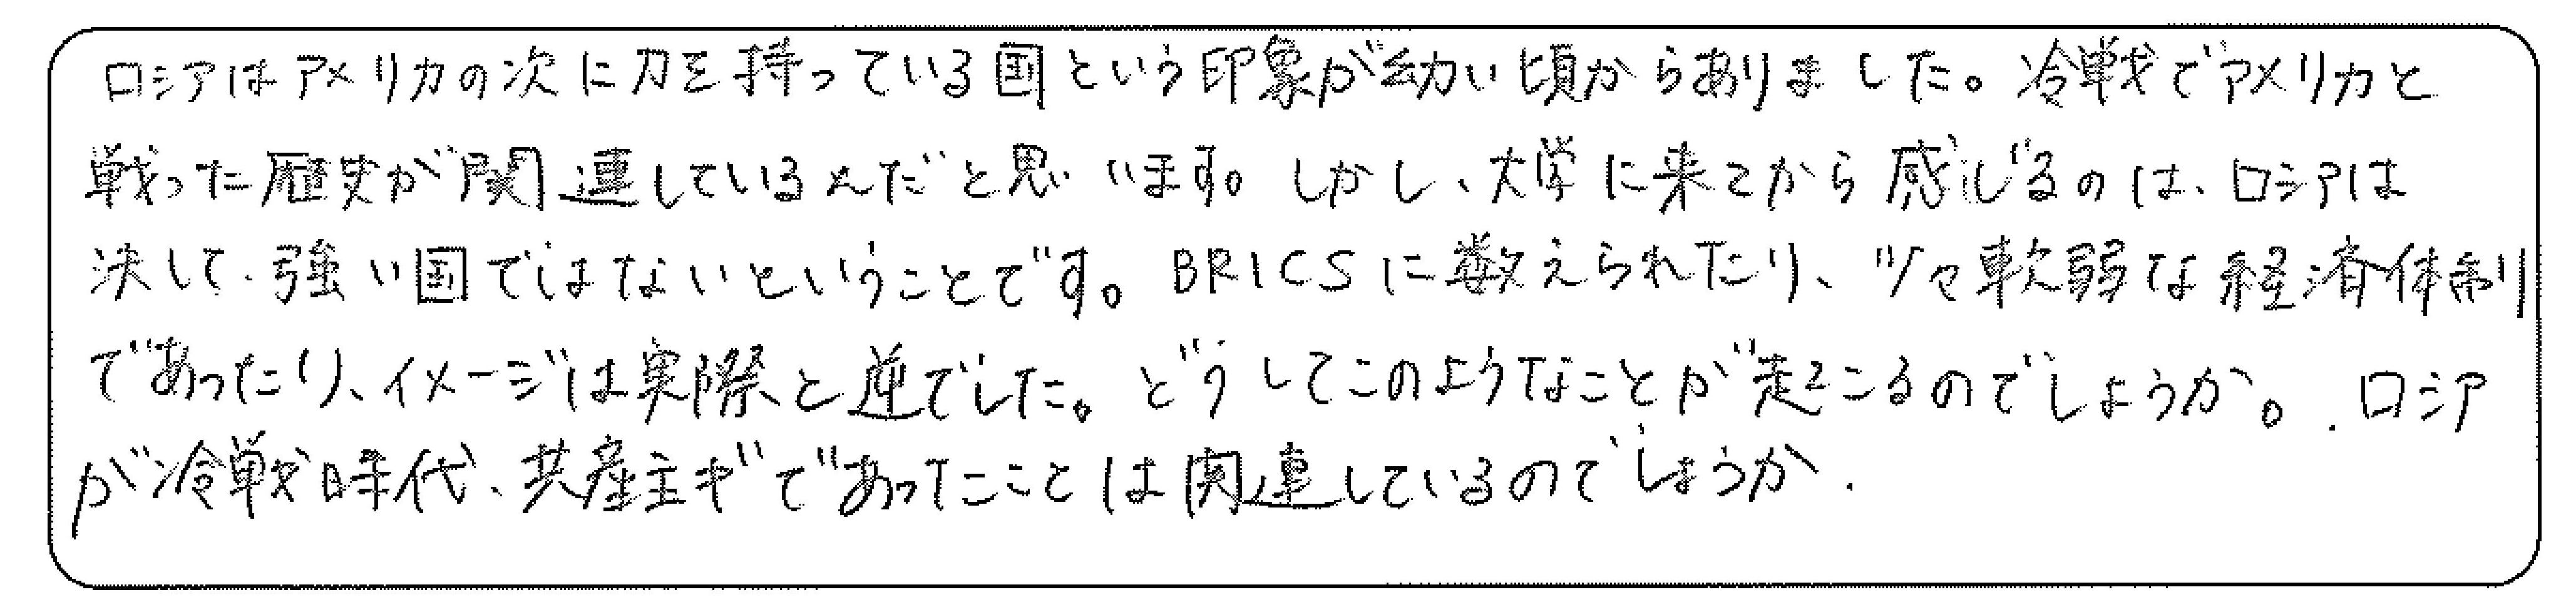 ロシアはアメリカの次に力を持っている国という印象が幼い頃からありました。冷戦でアメリカと
戦った歴史が関連しているんだと思います。しかし、大学に来てから感じるのは、ロシアは
決して、強い国ではないということです。BRICSに数えられたり、軟弱な経済体制
であったり、イメージは実際と逆でした。どうしてこのようなことが起こるのでしょうか。ロシア
が冷戦時代、共産主ギであったことは関連しているのでしょうか.